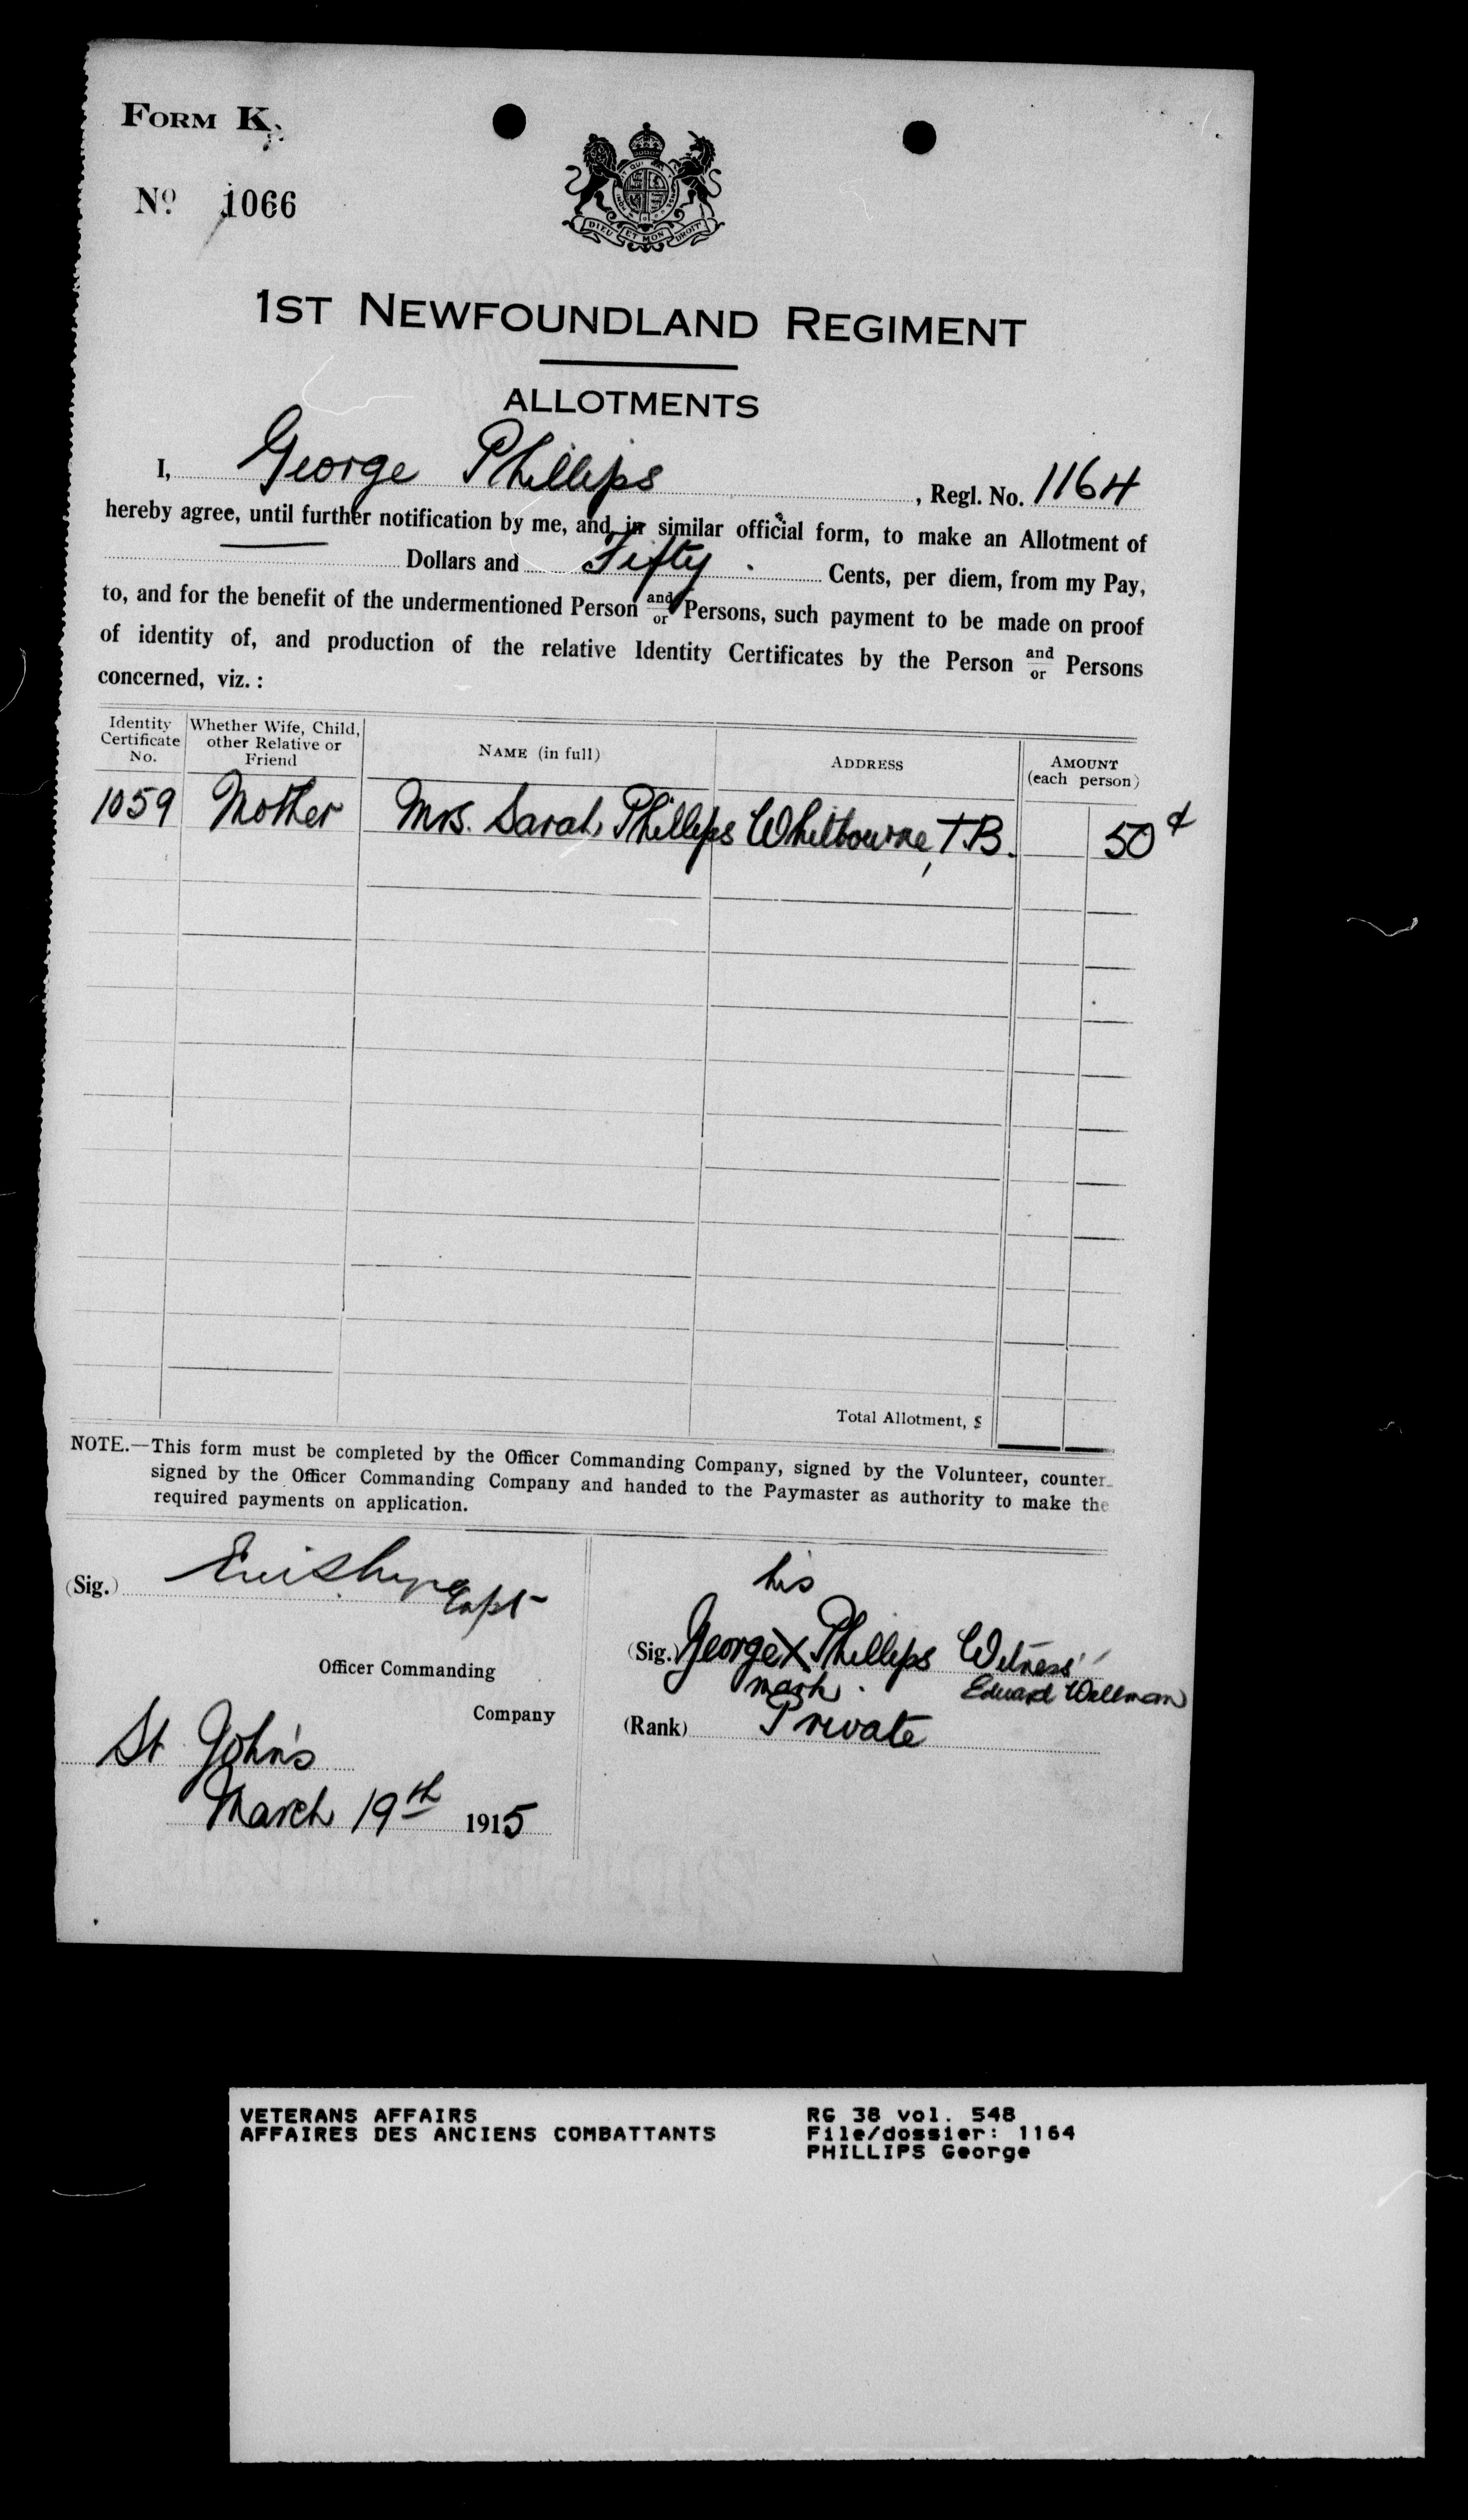 FORM K.
No. 1066
DIEU ET MON DROIT
1ST NEWFOUNDLAND REGIMENT
ALLOTMENTS
I, George Phillips, Regl. No. 1164
hereby agree, until further notification by me, and in similar official form, to make an Allotment of
— Dollars and Fifty Cents, per diem, from my Pay,
to, and for the benefit of the undermentioned Person and/or Persons, such payment to be made on proof
of identity of, and production of the relative Identity Certificates by the Person and/or Persons
concerned, viz.:
Identity Certificate No. Whether Wife, Child, other Relative or Friend NAME (in full) ADDRESS AMOUNT (each person)
1059 Mother Mrs. Sarah Phillips Whitbourne, T.B. 50¢
Total Allotment, $
NOTE.—This form must be completed by the Officer Commanding Company, signed by the Volunteer, counter-
signed by the Officer Commanding Company and handed to the Paymaster as authority to make the
required payments on application.
(Sig.) Capt
Officer Commanding
Company
St John's
March 19th 1915
his
(Sig.) George X Phillips Witness
mark. Edward Wellman
(Rank) Private
VETERANS AFFAIRS
AFFAIRES DES ANCIENS COMBATTANTS
RG 38 vol. 548
File/dossier: 1164
PHILLIPS George